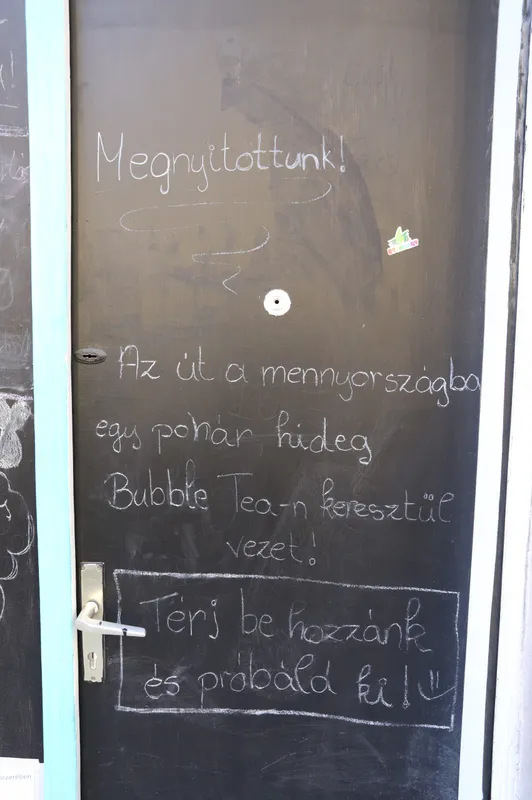 Megnyitottunk!
Az út a mennyországba
egy pohár hideg
Bubble Tea-n keresztül
vezet!
Térj be hozzánk
és próbáld ki! =)